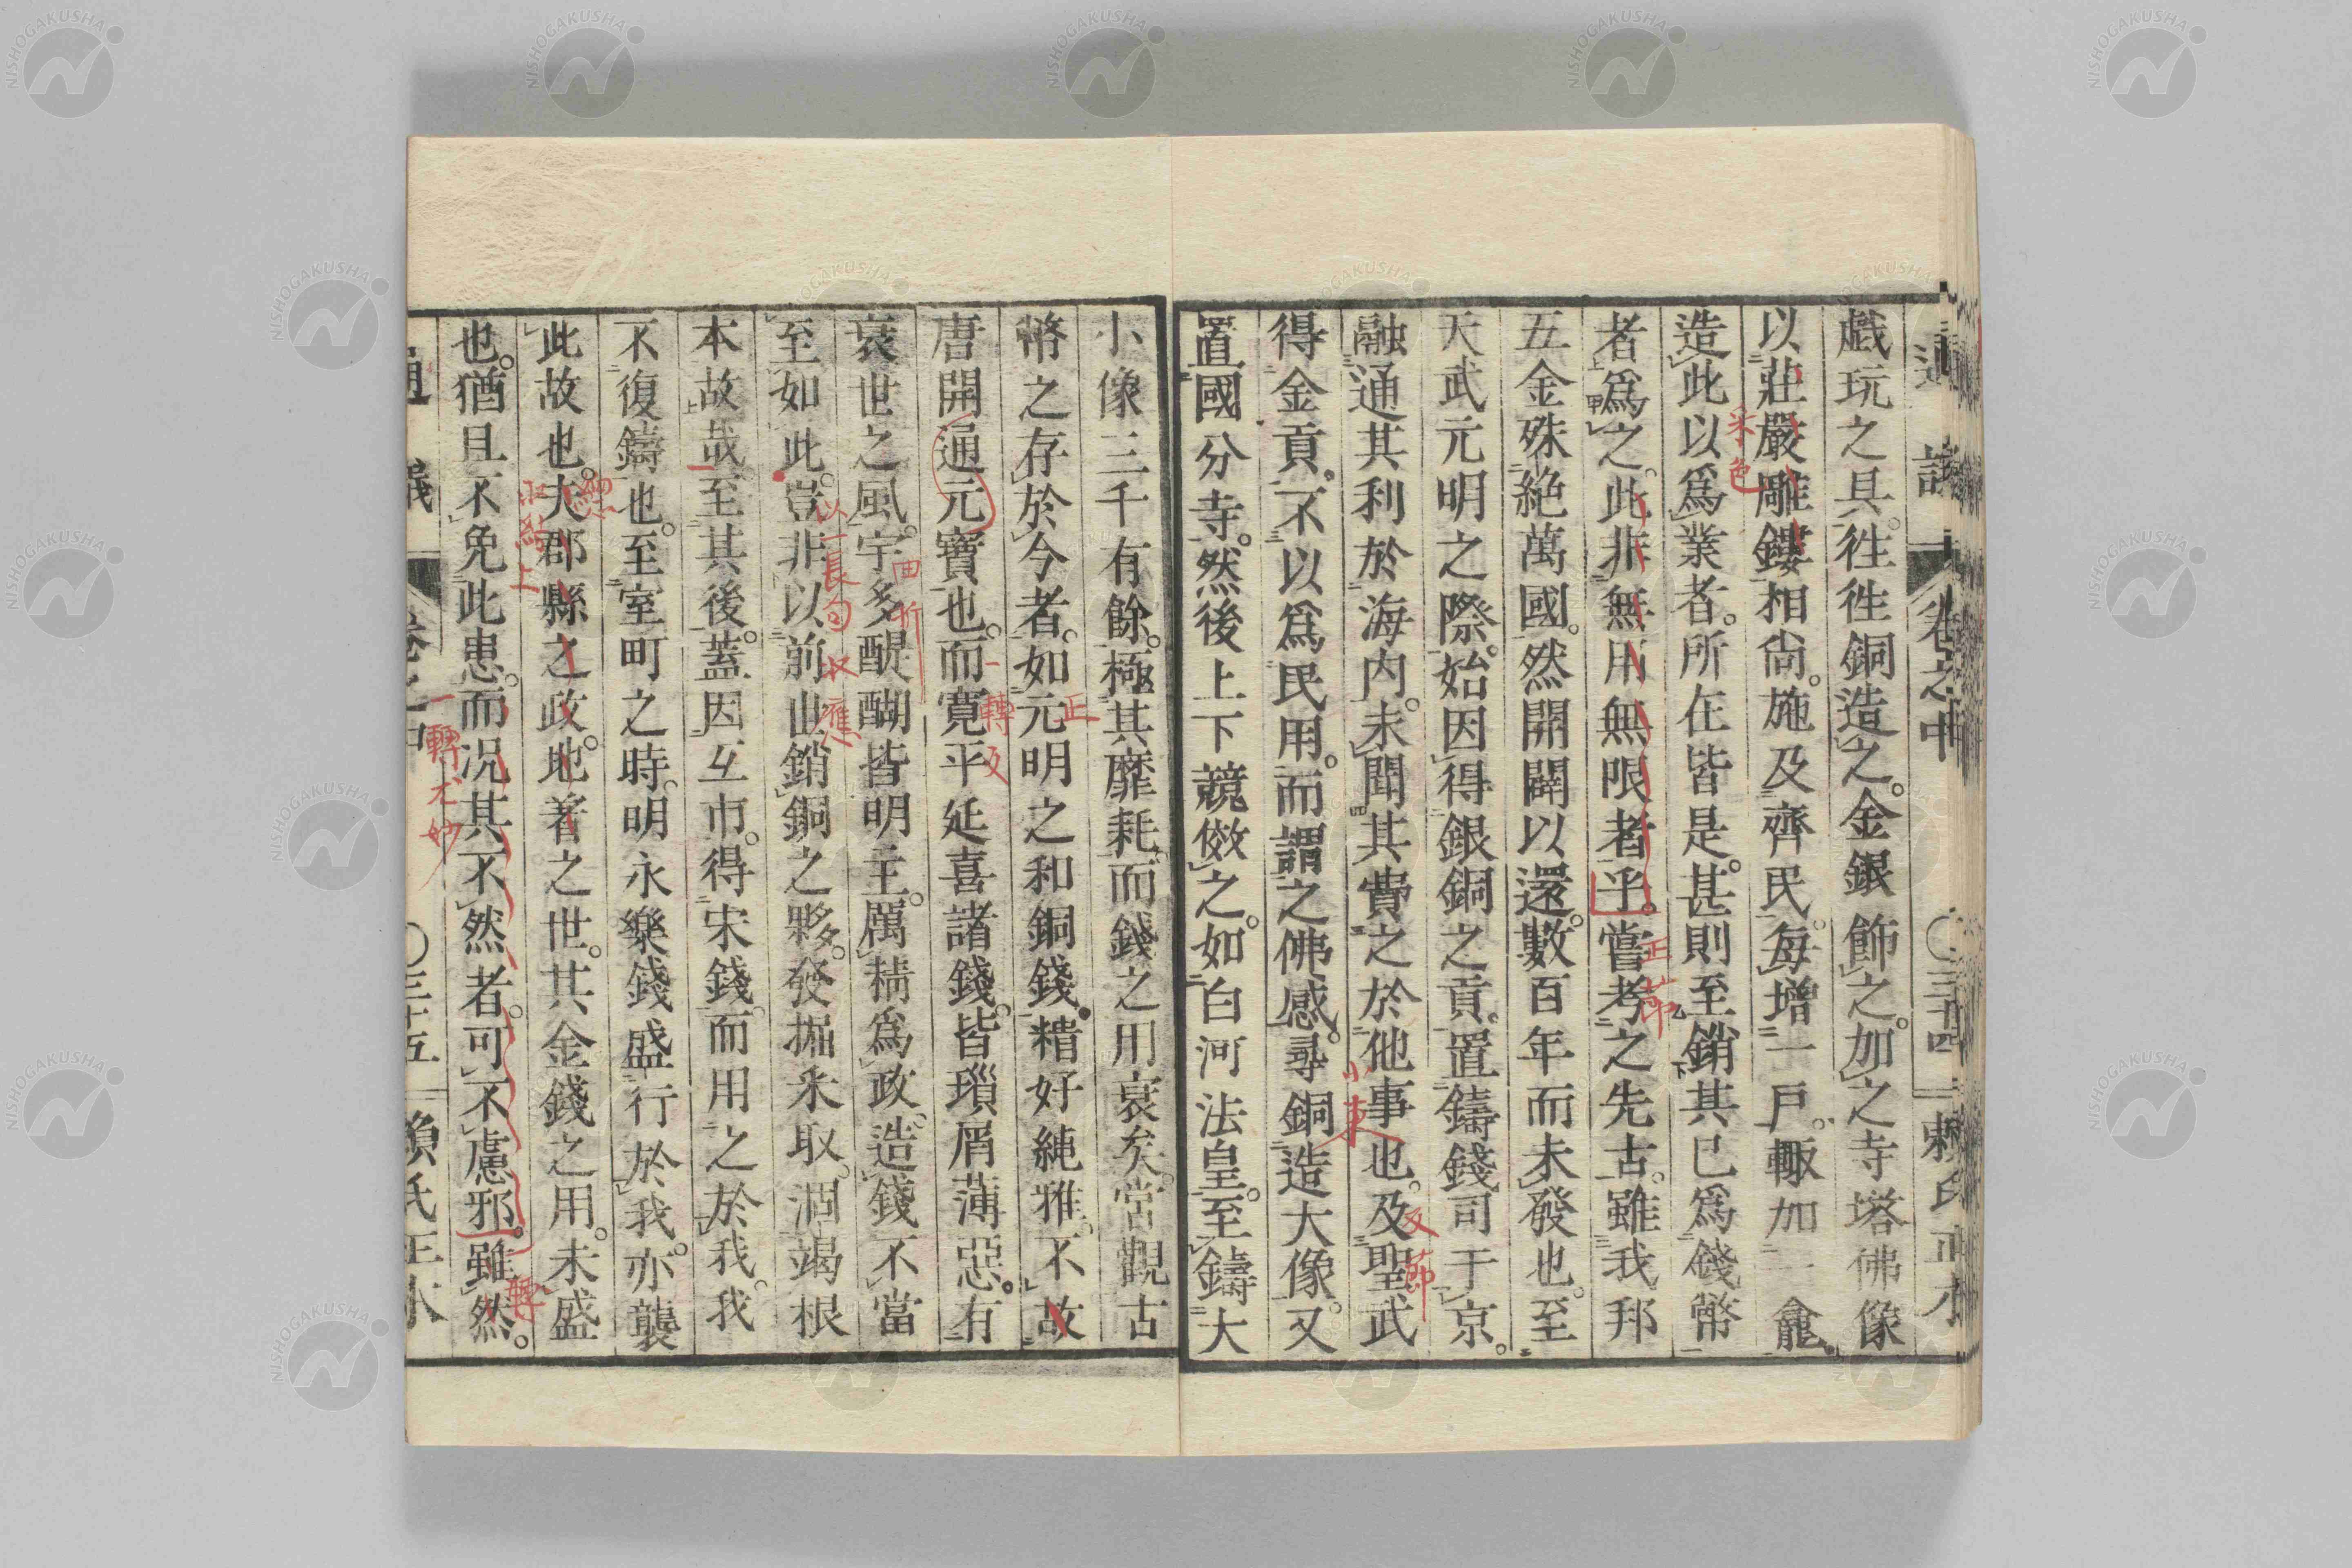 通議 卷之中 〇三十四 賴氏正本
戯玩之具。徃徃銅造之。金銀飾之。加之寺塔佛像
以莊嚴雕鏤相尙。施及齊民。每增一戶。輙加一龕。
采色
造此以爲業者。所在皆是。甚則至銷其已爲錢幣
者爲之。此非無用無限者乎。嘗考之先古。雖我邦
正節
五金殊絶萬國。然開闢以還。數百年而未發也。至
天武元明之際。始因得銀銅之貢。置鑄錢司于京。
融通其利於海內。未聞其費之於他事也。及聖武
小束
反節
得金貢。不以爲民用。而謂之佛感。尋銅造大像。又
置國分寺。然後上下競傚之。如白河法皇。至鑄大
小像三千有餘。極其靡耗。而錢之用衰矣。當觀古
幣之存於今者。如元明之和銅錢。精好純雅。不故
正
唐開通元寶也。而寬平延喜諸錢。皆瑣屑薄惡。有
一轉反
衰世之風。宇多醍醐皆明主。厲精爲政。造錢不當
至如此。豈非以前世銷銅之夥。發掘釆取。涸竭根
以一長句收應
本故哉。至其後。蓋因互市。得宋錢。而用之於我。我
不復鑄也。至室町之時。明永樂錢盛行於我。亦襲
此故也。夫郡縣之政。地著之世。其金錢之用。未盛
也。猶且不免此患。而况其不然者。可不慮邪。雖然。
一轉尤妙
轉
通議 卷之中 〇三十五 賴氏正本
NISHOGAKUSHA